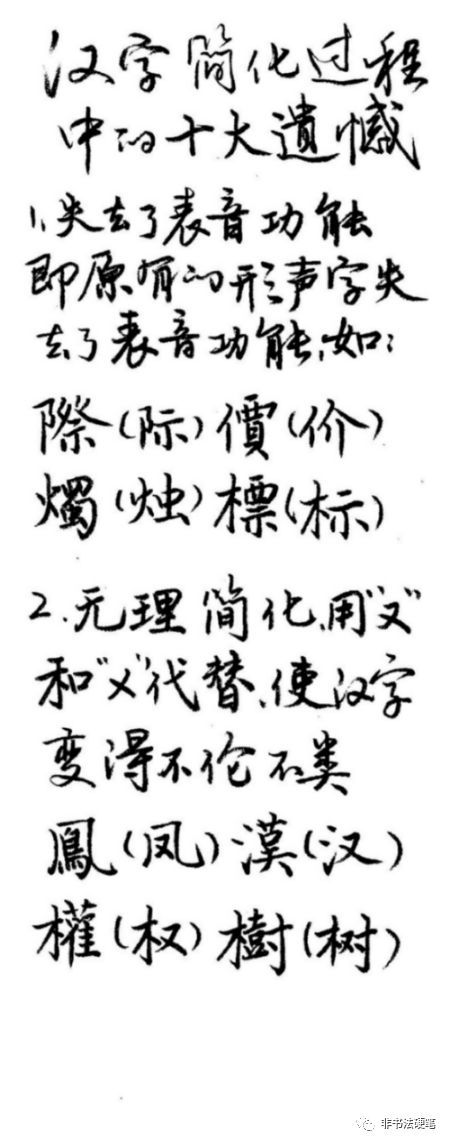 汉字简化过程
中的十大遺憾
1、失去了表音功能
即原有的形声字失
去了表音功能,如:
際(际)價(价)
燭(烛)標(标)
2.无理简化,用"又"
和"乂"代替,使汉字
变得不伦不类
鳳(凤)漢(汉)
權(权)樹(树)
非书法硬笔